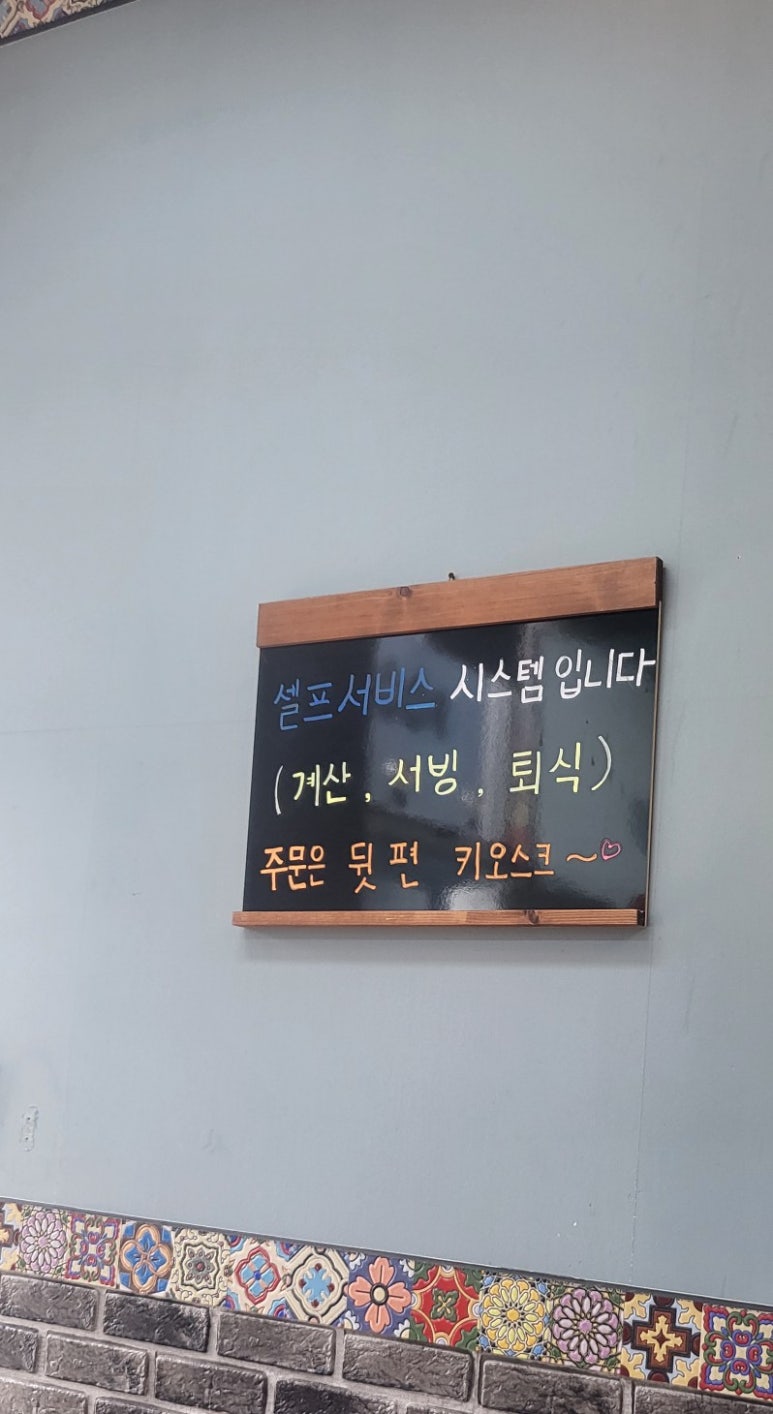 셀프서비스 시스템 입니다
(계산, 서빙, 퇴식)
주문은 뒷편 키오스크~♡